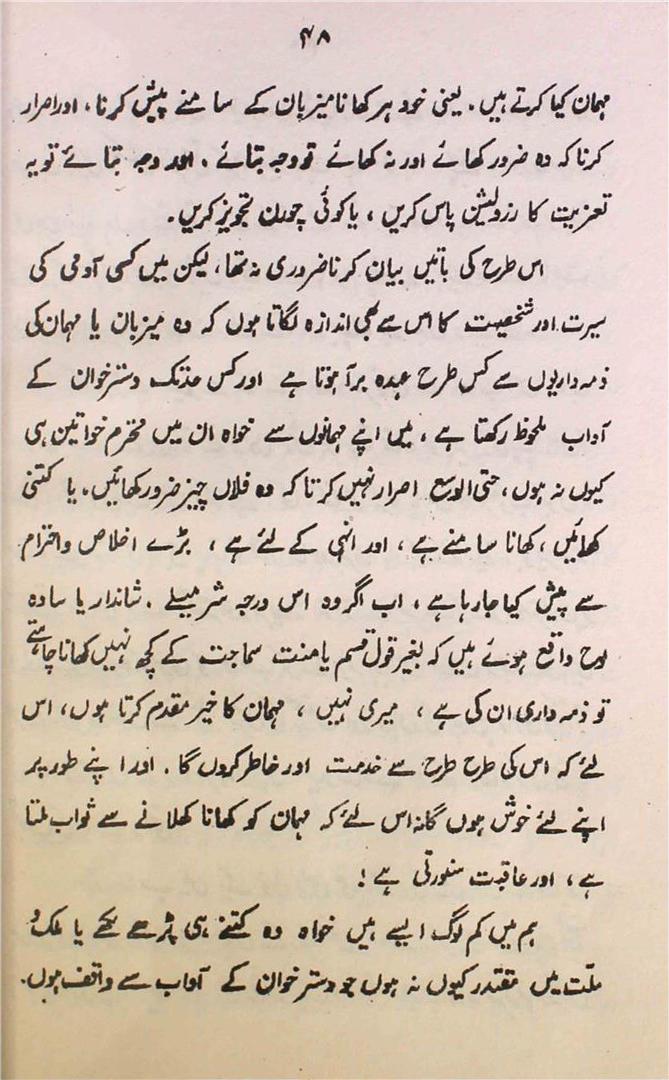 ۴۸
مہمان کیا کرتے ہیں۔ یعنی خود ہر کھانا میزبان کے سامنے پیش کرنا، اور اصرار
کرنا کہ وہ ضرور کھائے اور نہ کھائے تو وجہ بتائے، اور وجہ بتائے تو یہ
تعزیت کا رزولیشن پاس کریں، یا کوئی چورن تجویز کریں۔
اس طرح کی باتیں بیان کرنا ضروری نہ تھا، لیکن میں کسی آدمی کی
سیرت اور شخصیت کا اس سے بھی اندازہ لگاتا ہوں کہ وہ میزبان یا مہمان کی
ذمہ داریوں سے کس طرح عہدہ برآ ہوتا ہے اور کس حد تک دسترخوان کے
آداب ملحوظ رکھتا ہے، میں اپنے مہمانوں سے خواہ ان میں محترم خواتین ہی
کیوں نہ ہوں، حتی الوسع اصرار نہیں کرتا کہ وہ فلاں چیز ضرور کھائیں۔ یا کتنی
کھائیں، کھانا سامنے ہے، اور انہی کے لئے ہے، بڑے اخلاص واحترام
سے پیش کیا جا رہا ہے، اب اگر وہ اس درجہ شرمیلے، شاندار یا سادہ
لوح واقع ہوئے ہیں کہ بغیر قول قسم یا منت سماجت کے کچھ نہیں کھانا چاہتے
تو ذمہ داری ان کی ہے، میری نہیں، مہمان کا خیر مقدم کرتا ہوں، اس
لئے کہ اس کی طرح طرح سے خدمت اور خاطر کروں گا۔ اور اپنے طور پر
اپنے لئے خوش ہوں گا نہ اس لئے کہ مہمان کو کھانا کھلانے سے ثواب ملتا
ہے، اور عاقبت سنورتی ہے!
ہم میں کم لوگ ایسے ہیں خواہ وہ کتنے ہی پڑھے لکھے یا ملک و
ملّت میں مقتدر کیوں نہ ہوں جو دسترخوان کے آداب سے واقف ہوں۔